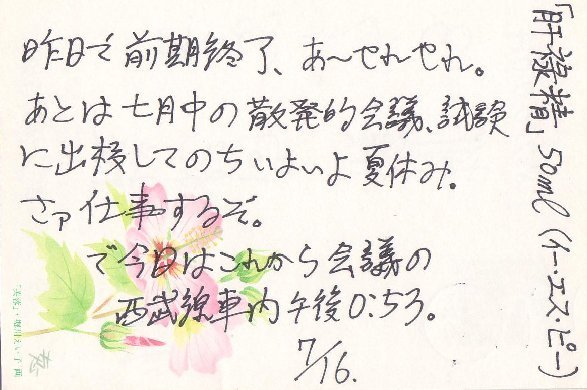 昨日で前期終了、あ〜やれやれ。
あとは七月中の散発的会議、試験
に出校してのちいよいよ夏休み。
さア仕事するぞ。
で今日はこれから会議の
西武線車内午後0:53。
7/16.
「肝緑精」50ml (イー・エス・ピー)